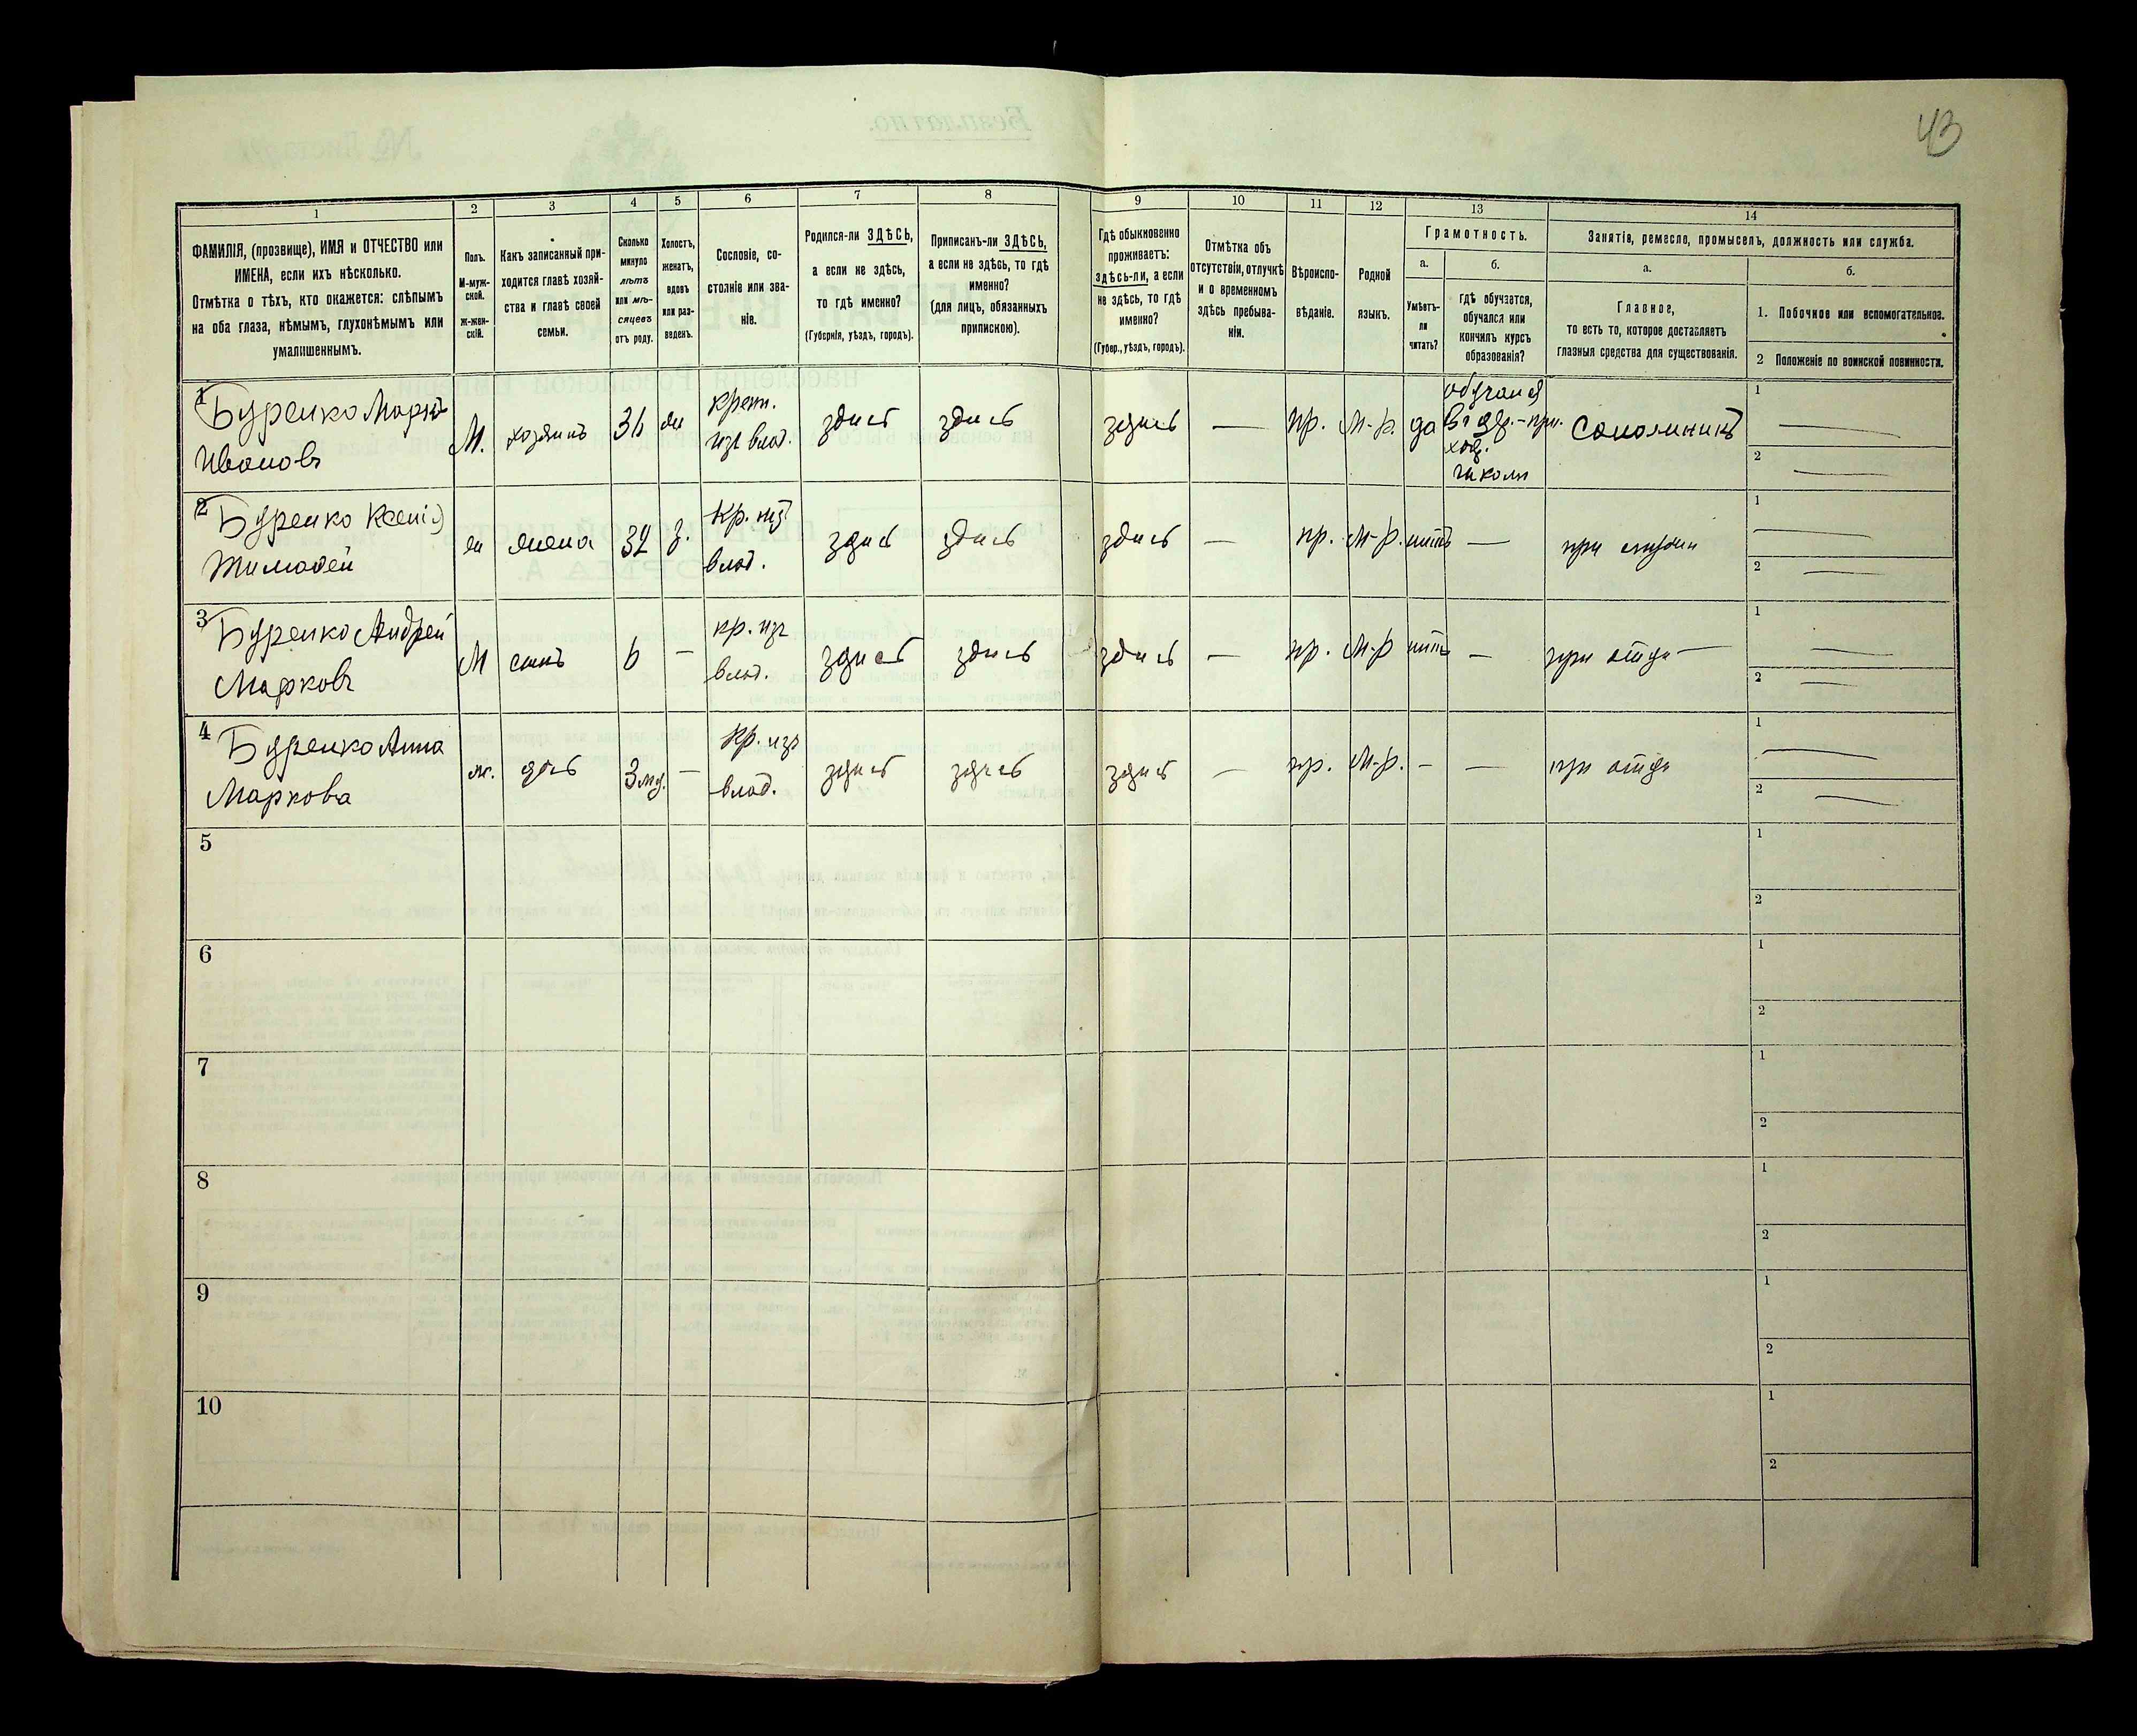 43
1 2 3 4 5 6 7 8 9 10 11 12 13 14
ФАМИЛІЯ, (прозвище), ИМЯ и ОТЧЕСТВО или
ИМЕНА, если ихъ нѣсколько.
Отмѣтка о тѣхъ, кто окажется: слѣпымъ
на оба глаза, нѣмымъ, глухонѣмымъ или
умалишеннымъ.
Полъ.
М-муж-
ской.
Ж-жен-
скій.
Какъ записанный при-
ходится главѣ хозяй-
ства и главѣ своей
семьи.
Сколько
минуло
лѣтъ
или мѣ-
сяцевъ
отъ роду.
Холостъ,
женатъ,
вдовъ
или раз-
веденъ.
Сословіе, со-
стояніе или зва-
ніе.
Родился-ли ЗДѢСЬ,
а если не здѣсь,
то гдѣ именно?
(Губернія, уѣздъ, городъ).
Приписанъ-ли ЗДѢСЬ,
а если не здѣсь, то гдѣ
именно?
(для лицъ, обязанныхъ
припискою).
Гдѣ обыкновенно
проживаетъ:
здѣсь-ли, а если
не здѣсь, то гдѣ
именно?
(Губер., уѣздъ, городъ).
Отмѣтка объ
отсутствіи, отлучкѣ
и о временномъ
здѣсь пребыва-
ніи.
Вѣроиспо-
вѣданіе.
Родной
языкъ.
Грамотность.
а.
Умѣетъ-
ли
читать?
б.
Гдѣ обучается,
обучался или
кончилъ курсъ
образованія?
Занятія, ремесло, промыселъ, должность или служба.
а.
Главное,
то есть то, которое доставляетъ
главныя средства для существованія.
б.
1. Побочное или вспомогательное.
2 Положеніе по воинской повинности.
1
Буренко Марко
Ивановъ
М.
хозяинъ
36
же
крест.
изъ влад.
здѣсь
здѣсь
здѣсь
—
пр.
М-р.
да
обучался
въ
школѣ
1 —
2 —
2
Буренко Ксенія
Тимофей
ж
жена
32
з.
Кр. изъ
влад.
здѣсь
здѣсь
здѣсь
—
пр.
М-р.
нѣтъ
—
при
1 —
2 —
3
Буренко Андрей
Марковъ
М
сынъ
6
—
кр. изъ
влад.
здѣсь
здѣсь
здѣсь
—
пр.
М-р
нѣтъ
—
при отцѣ —
1 —
2 —
4
Буренко Анна
Маркова
ж.
дочь
3 мѣ.
—
Кр. изъ
влад.
здѣсь
здѣсь
здѣсь
—
пр.
М-р.
—
—
при отцѣ
1 —
2 —
5
1
2
6
1
2
7
1
2
8
1
2
9
1
2
10
1
2